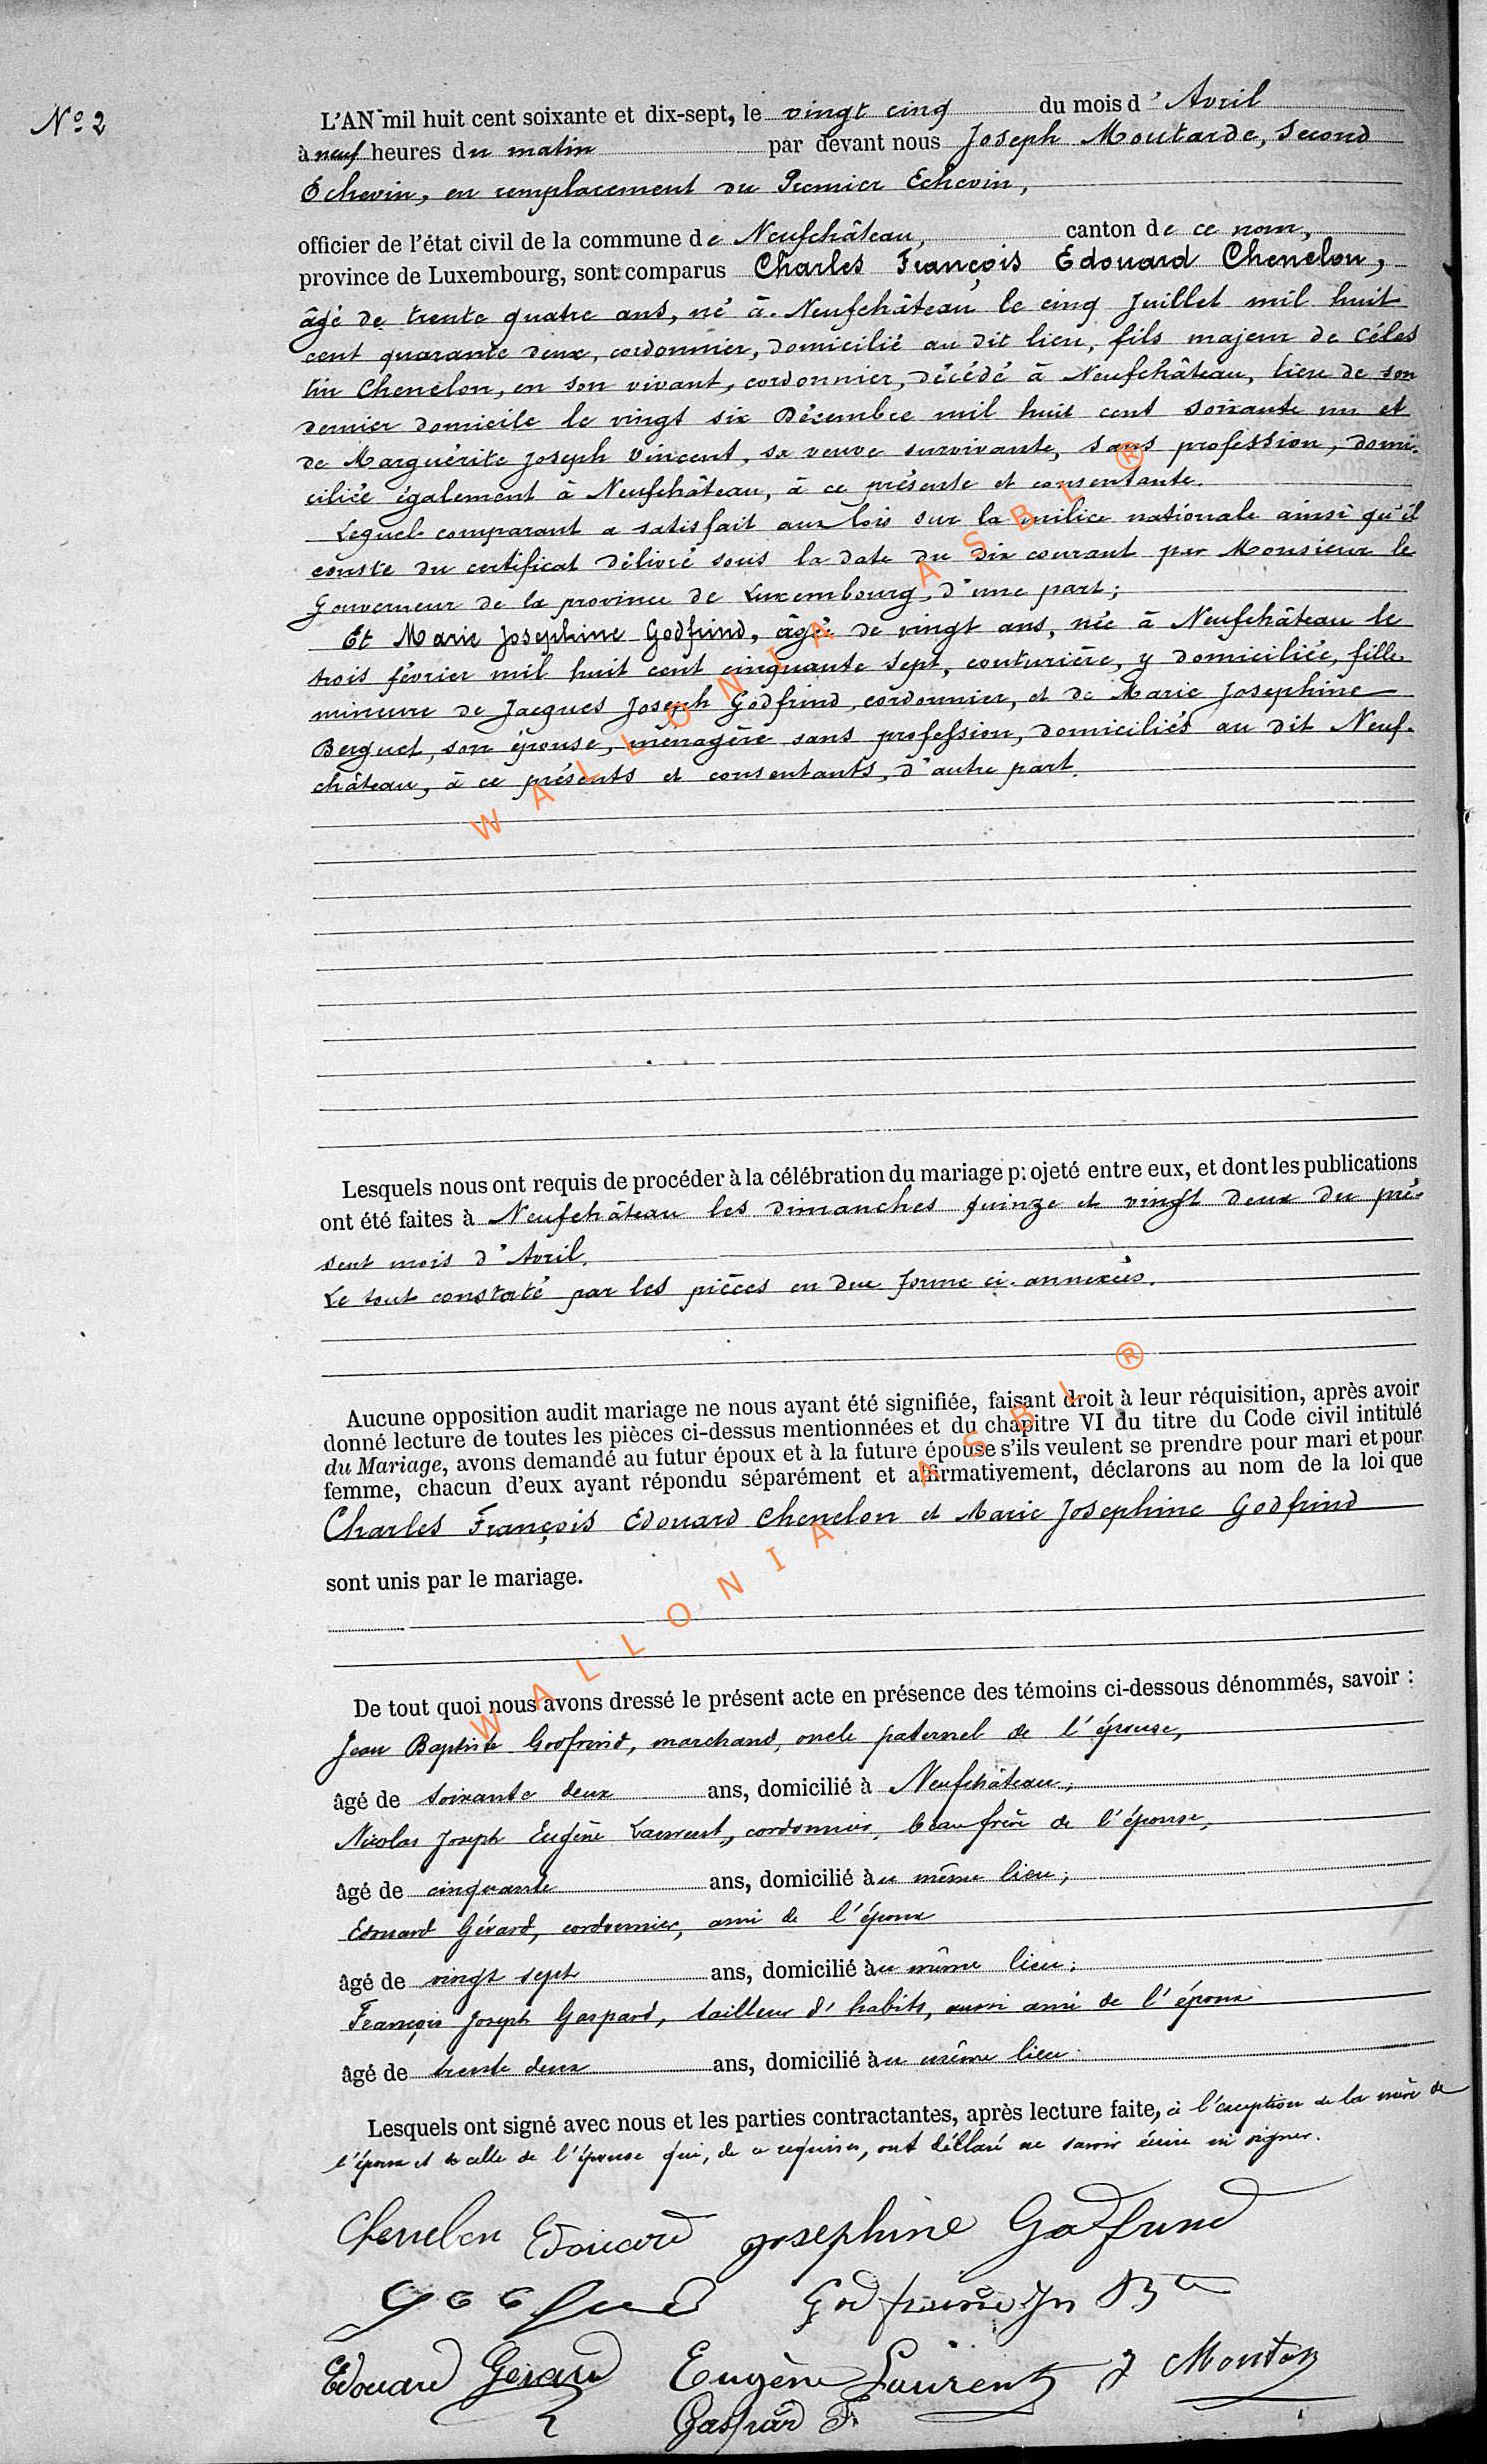 N° 2
L'AN mil huit cent soixante et dix-sept, le vingt cinq du mois d'Avril
à neuf heures du matin par devant nous Joseph Moutarde, Second
Echevin, en remplacement du Premier Echevin,
officier de l'état civil de la commune de Neufchâteau, canton de ce nom,
province de Luxembourg, sont comparus Charles François Edouard Chenelon,
âgé de trente quatre ans, né à Neufchâteau le cinq Juillet mil huit
cent quarante deux, cordonnier, domicilié au dit lieu, fils majeur de Céles
tin Chenelon, en son vivant, cordonnier, décédé à Neufchâteau, lieu de son
dernier domicile le vingt six Décembre mil huit cent soixante un et
de Marguérite Joseph Vincent, sa veuve survivante, sans profession, domi-
ciliée également à Neufchâteau, à ce présente et consentante.
Lequel comparant a satisfait aux lois sur la milice nationale ainsi qu'il
conste du certificat délivré sous la date du six courant par Monsieur le
Gouverneur de la province de Luxembourg, d'une part;
Et Marie Josephine Godfrind, âgée de vingt ans, née à Neufchâteau le
trois février mil huit cent cinquante sept, couturière, y domiciliée, fille
mineure de Jacques Joseph Godfrind, cordonnier, et de Marie Josephine
Berguet, son épouse, ménagère sans profession, domiciliés au dit Neuf-
château, à ce présents et consentants, d'autre part.
Lesquels nous ont requis de procéder à la célébration du mariage projeté entre eux, et dont les publications
ont été faites à Neufchâteau les dimanches quinze et vingt deux du pré-
sent mois d'Avril.
Le tout constaté par les pièces en due forme ci-annexées.
Aucune opposition audit mariage ne nous ayant été signifiée, faisant droit à leur réquisition, après avoir
donné lecture de toutes les pièces ci-dessus mentionnées et du chapitre VI du titre du Code civil intitulé
du Mariage, avons demandé au futur époux et à la future épouse s'ils veulent se prendre pour mari et pour
femme, chacun d'eux ayant répondu séparément et affirmativement, déclarons au nom de la loi que
Charles François Edouard Chenelon et Marie Josephine Godfrind
sont unis par le mariage.
De tout quoi nous avons dressé le présent acte en présence des témoins ci-dessous dénommés, savoir :
Jean Baptiste Godfrind, marchand, oncle paternel de l'épouse,
âgé de soixante deux ans, domicilié à Neufchâteau;
Nicolas Joseph Eugène Laurent, cordonnier, beau frère de l'épouse,
âgé de cinquante ans, domicilié au même lieu;
Edouard Gérard, cordonnier, ami de l'époux
âgé de vingt sept ans, domicilié au même lieu;
François Joseph Gaspard, tailleur d'habits, aussi ami de l'époux
âgé de trente deux ans, domicilié au même lieu.
Lesquels ont signé avec nous et les parties contractantes, après lecture faite, à l'exception de la mère de
l'époux et de celle de l'épouse qui, de ce requises, ont déclaré ne savoir écrire ni signer.
Chenelon Edouard Josephine Godfrind
Godfrind Jn Bte
Edouard Gérard Eugène Laurent J Moutard
Gaspard F.
WALLONIA ASBL ®
WALLONIA ASBL ®